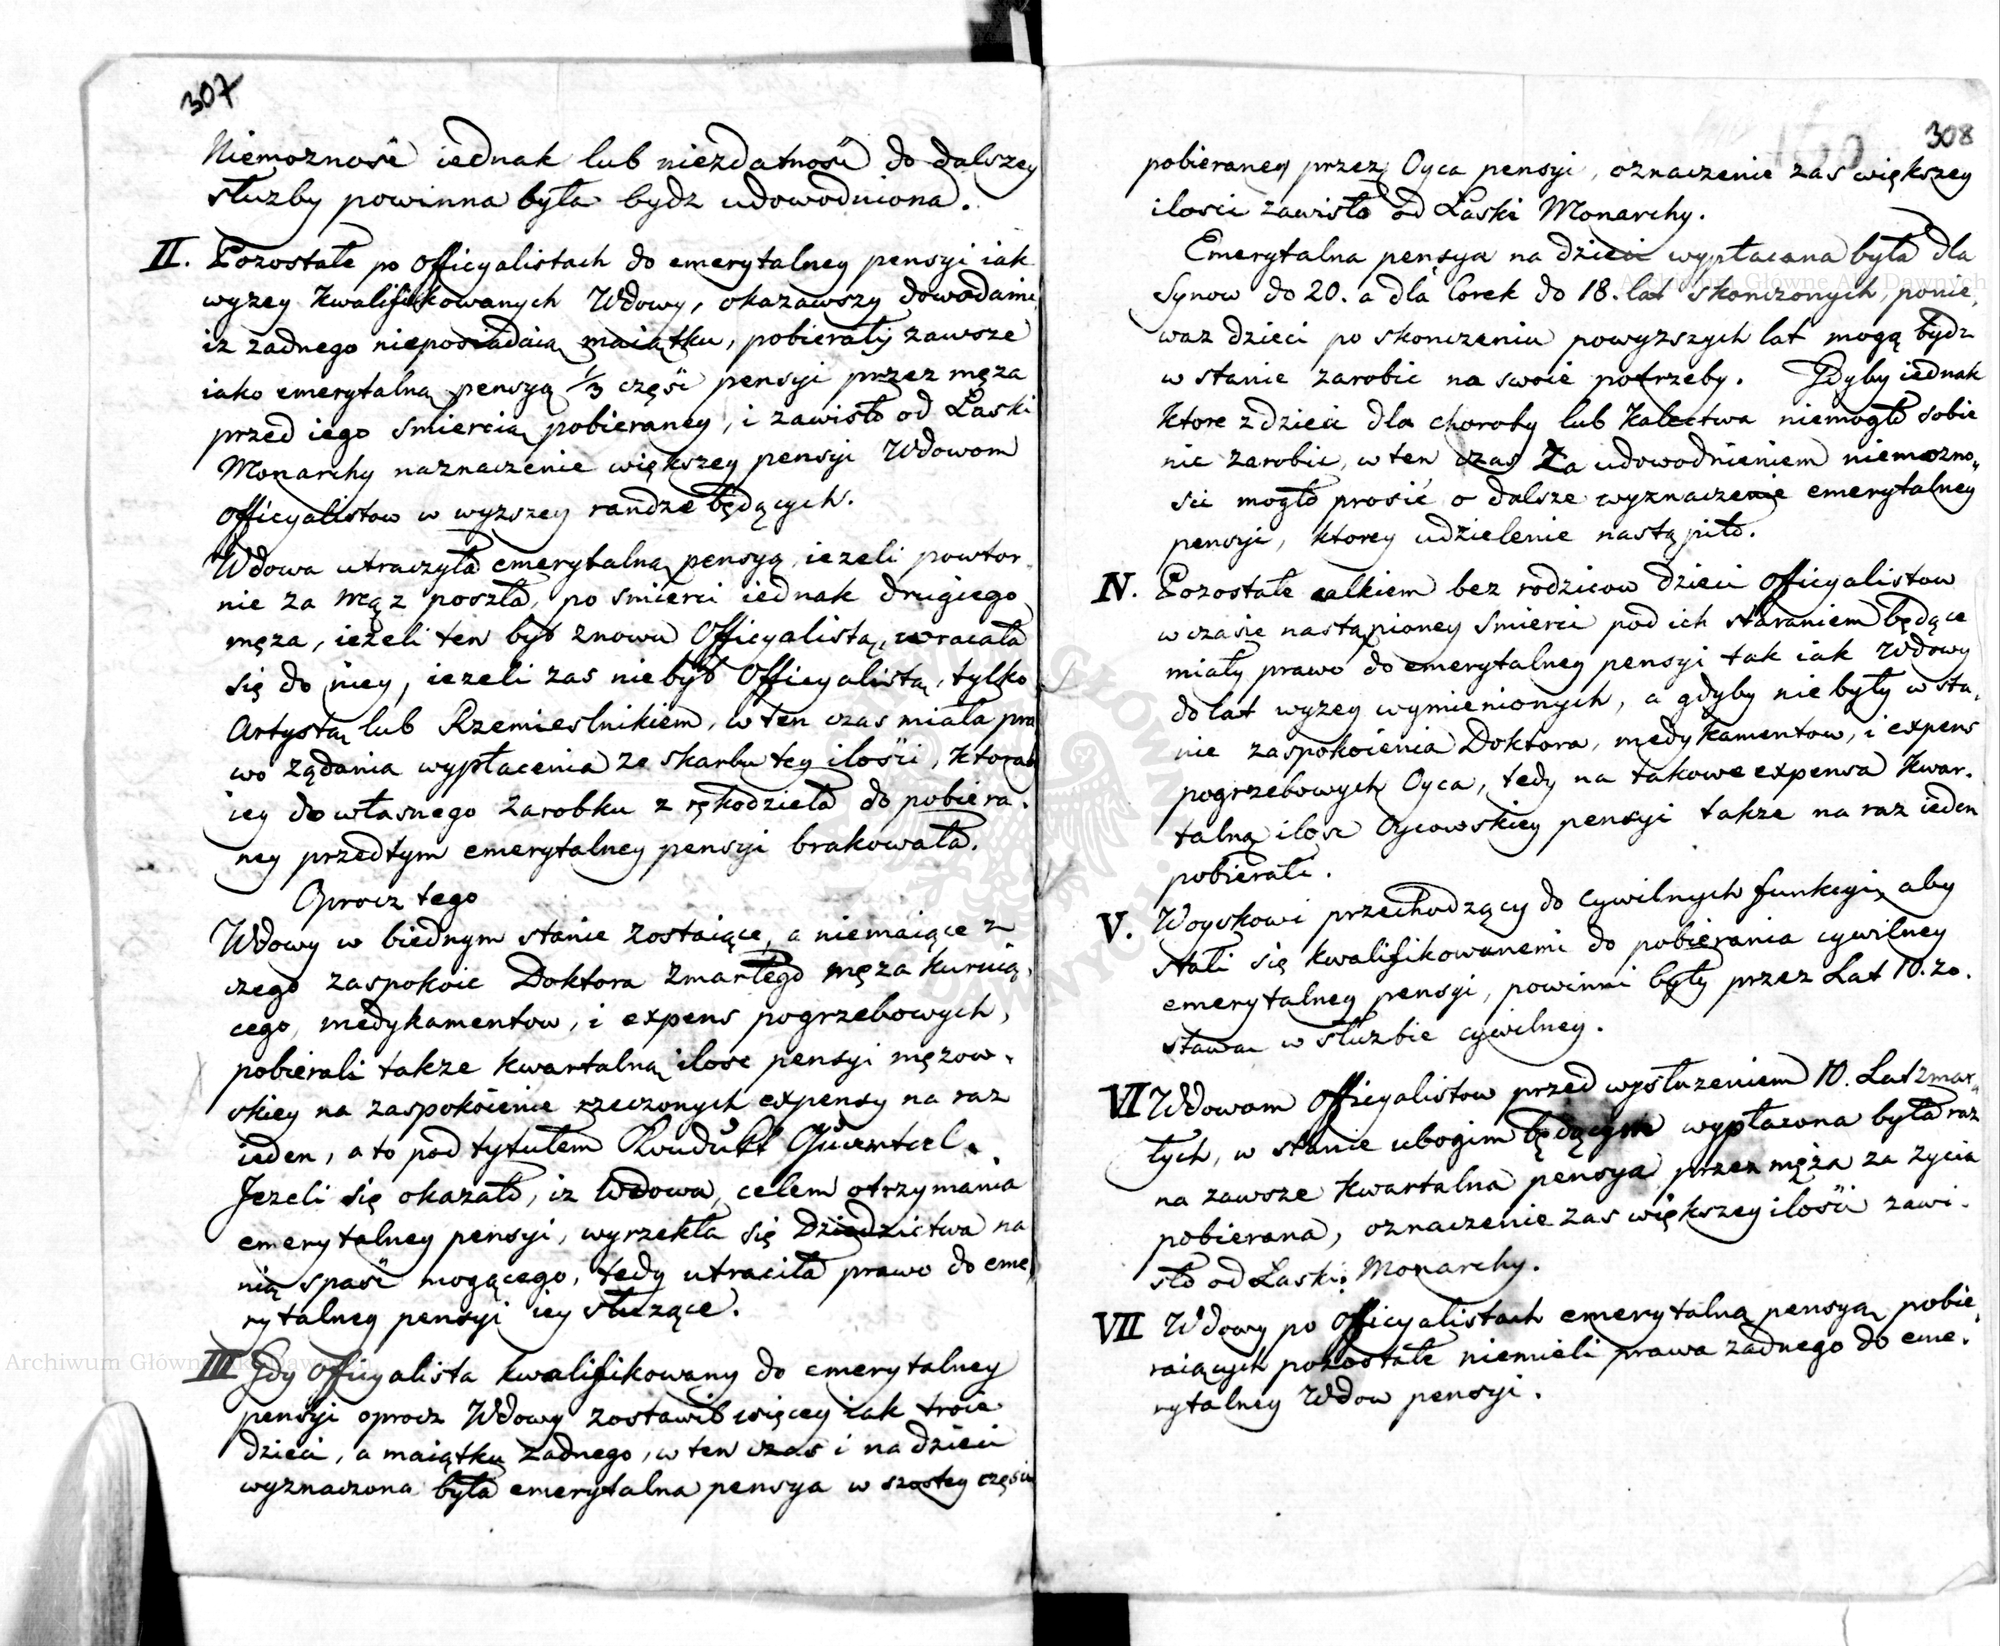 307
Niemozność iednak lub niezdatność do dalszey
służby powinna była bydz udowodniona.
II. Pozostałe po Officyalistach do emerytalney pensyi iak
wyzey kwalifikowanych Wdowy, okazawszy dowodami
iz zadnego nieposiadaią maiątku, pobierały zawsze
iako emerytalną pensyą 1/3 część pensyi przez męza
przed iego smiercią pobieraney, i zawisło od Łaski
Monarchy naznaczenie większey pensyi Wdowom
Officyalistow w wyzszey randze będących.
Wdowa utraczyła emerytalną pensyą, iezeli powtor-
nie za mąz poszła, po smierci iednak drugiego
męza, iezeli ten był znowu Officyalistą, wracała
się do niey, iezeli zas niebył Officyalistą, tylko
Artystą lub Rzemieslnikiem, w ten czas miała pra
wo ządania wypłacenia ze skarbu tey ilości, ktora
iey do własnego zarobku z rękodzieła do pobiera-
ney przedtym emerytalney pensyi brakowała.
Oprocz tego
Wdowy w biednym stanie zostaiące, a niemaiące z
czego zaspokoic Doktora zmarłego męza kuruią-
cego, medykamentow, i expens pogrzebowych,
pobierali takze kwartalną ilosc pensyi męzow-
skiey na zaspokoienie rzeczonych expensy na raz
ieden, a to pod tytułem Konduckt Quartel.
Jezeli się okazało, iz Wdowa, celem otrzymania
emerytalney pensyi, wyrzekła się Dziedzictwa na
nią spaść mogącego, tedy utraciła prawo do eme
rytalney pensyi iey służące.
III Gdy Officyalista kwalifikowany do emerytalney
pensyi oprocz Wdowy zostawił więcey iak troie
dzieci, a maiątku zadnego, w ten czas i na dzieci
wyznaczona była emerytalna pensya w szostey części
308
pobieraney przez Oyca pensyi, oznaczenie zas większey
ilosci zawisło od Łaski Monarchy.
Emerytalna pensya na dzieci wypłacana była dla
Synow do 20. a dla Corek do 18. lat skonczonych, ponie-
waz dzieci po skonczeniu powyzszych lat mogą bydz
w stanie zarobic na swoie potrzeby. Gdyby iednak
ktore z dzieci dla choroby lub kalectwa niemogło sobie
nic zarobic, w ten czas za udowodnieniem niemozno-
sci mogło prosić o dalsze wyznaczenie emerytalney
pensyi, ktorey udzielenie nastąpiło.
IV. Pozostałe całkiem bez rodzicow dzieci Officyalistow
w czasie nastąpioney smierci pod ich staraniem będące
miały prawo do emerytalney pensyi tak iak Wdowy
do lat wyzey wymienionych, a gdyby nie były w sta-
nie zaspokoienia Doktora, medykamentow, i expens
pogrzebowych Oyca, tedy na takowe expensa kwar-
talną ilosc Oycowskiey pensyi takze na raz ieden
pobierali.
V. Woyskowi przechodzący do cywilnych funkcyi, aby
stali się kwalifikowanemi do pobierania cywilney
emerytalney pensyi, powinni były przez Lat 10. zo-
stawac w służbie cywilney.
VI Wdowom Officyalistow przed wysłuzeniem 10. Lat zmar-
łych, w stanie ubogim będącym wypłacona była raz
na zawsze kwartalna pensya przez męża za zycia
pobierana, oznaczenie zas większey ilości zawi-
sło od Łaski Monarchy.
VII Wdowy po Officyalistach emerytalną pensyą pobie-
raiących pozostałe niemieli prawa zadnego do eme-
rytalney Wdow pensyi.